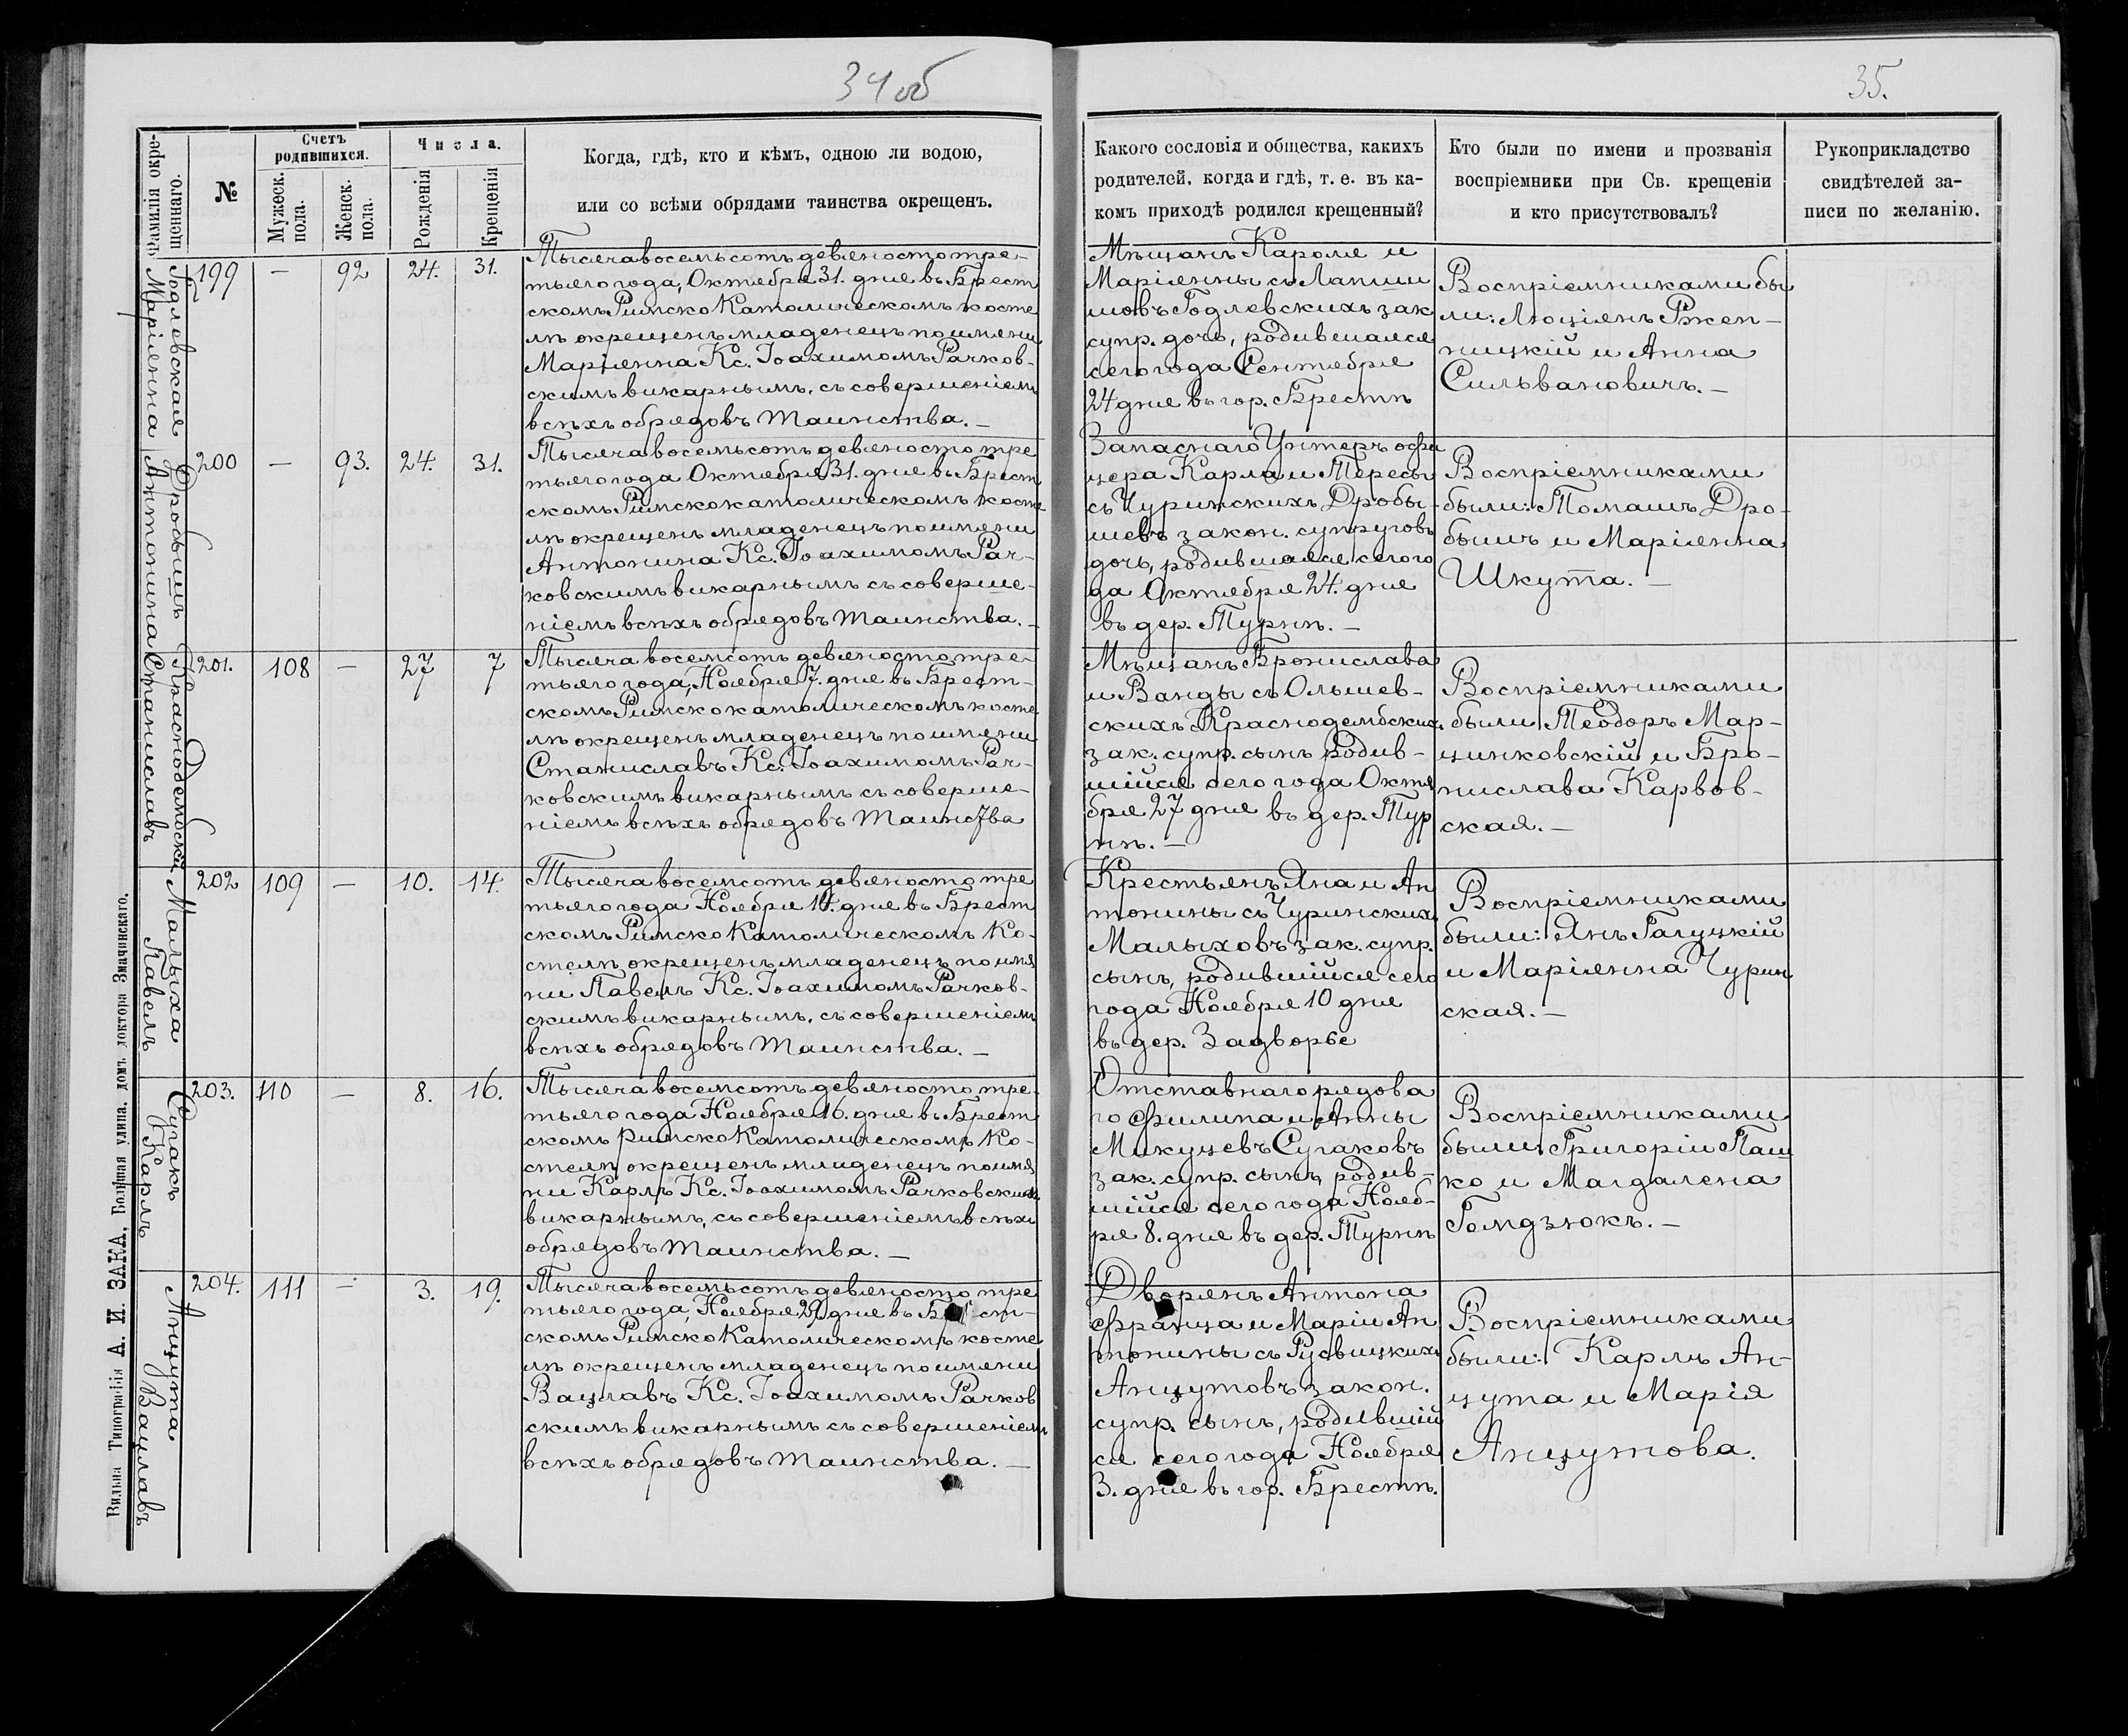 34 об
35.
Фамилія окре-
щеннаго.
№
Счетъ
родившихся.
Мужеск.
пола.
Женск.
пола.
Числа.
Рожденія
Крещенія
Когда, гдѣ, кто и кѣмъ, одною ли водою,
или со всѣми обрядами таинства окрещенъ.
Какого сословія и общества, какихъ
родителей, когда и гдѣ, т. е. въ ка-
комъ приходѣ родился крещенный?
Кто были по имени и прозванія
воспріемники при Св. крещеніи
и кто присутствовалъ?
Рукоприкладство
свидѣтелей за-
писи по желанію.
Годлевская
Маріянна
199 — 92 24. 31.
Тысяча восемьсотъ девяносто тре-
тьяго года, Октября 31. дня въ Брест
скомъ Римско Католическомъ косте
лѣ окрещенъ младенецъ по имени
Маріянна Кс. Іоахимомъ Рачков-
скимъ викарнымъ, съ совершеніемъ
всѣхъ обрядовъ Таинства. —
Мѣщанъ Кароля и
Маріянны съ Лапши
новъ Годлевскихъ зак.
супр. дочь, родившаяся
сего года Сентября
24 дня въ гор. Брестѣ
Воспріемниками бы
ли: Люціянъ Ржеп-
ницкій и Анна
Сильвановичъ. —
Дробышъ
Антонина
200 — 93. 24. 31.
Тысяча восемьсотъ девяносто тре
тьяго года Октября 31. дня въ Брест
скомъ Римскокатолическомъ косте
лѣ окрещенъ младенецъ по имени
Антонина Кс. Іоахимомъ Рач-
ковскимъ викарнымъ съ соверше-
ніемъ всѣхъ обрядовъ Таинства. —
Запаснаго Унтеръ офи
цера Карла и Тересы
съ Чуринскихъ Дробы-
шевъ закон. супруговъ
дочь, родившаяся сего го
да Октября 24. дня
въ дер. Турнѣ. —
Воспріемниками
были: Томашъ Дро-
бышъ и Маріянна
Шкута. —
Краснодембскій
Станиславъ
201. 108 — 27 7
Тысяча восемсотъ девяносто тре-
тьяго года, Ноября 7. дня въ Брест-
скомъ Римскокатолическомъ косте
лѣ окрещенъ младенецъ по имени
Станиславъ Кс. Іоахимомъ Рач-
ковскимъ викарнымъ съ соверше-
ніемъ всѣхъ обрядовъ Таинства
Мѣщанъ Бронислава
и Ванды съ Ольшев-
скихъ Краснодембскихъ
зак. супр. сынъ родив-
шійся сего года Октя
бря 27 дня въ дер. Тур
нѣ. —
Воспріемниками
были Теодоръ Мар-
цинковскій и Бро-
нислава Карвов-
ская. —
Малыха
Павелъ
202 109 — 10. 14.
Тысяча восемсотъ девяносто тре
тьяго года Ноября 14. дня въ Брест
скомъ Римско Католическомъ Ко-
стелѣ окрещенъ младенецъ по име
ни Павелъ Кс. Іоахимомъ Рачков-
скимъ викарнымъ, съ совершеніемъ
всѣхъ обрядовъ Таинства. —
Крестьянъ Яна и Ан
тонины съ Чуринскихъ
Малыховъ зак. супр.
сынъ, родившійся сего
года Ноября 10 дня
въ дер. Задворье
Воспріемниками
были: Янъ Галуцкій
и Маріянна Чурин
ская. —
Сугакъ
Карлъ
203. 110 — 8. 16.
Тысяча восемсотъ девяносто тре-
тьяго года Ноября 16. дня въ Брест
скомъ Римско Католическомъ Ко-
стелѣ окрещенъ младенецъ по име
ни Карлъ Кс. Іоахимомъ Рачковскимъ
викарнымъ, съ совершеніемъ всѣхъ
обрядовъ Таинства. —
Отставнаго рядова
го Филипа и Анны
Микуцевъ Сугаковъ
зак. супр. сынъ, родив-
шійся сего года Нояб-
ря 8. дня въ дер. Турнѣ
Воспріемниками
были Григорій Паш
ко и Магдалена
Гомдзюкъ. —
Анцута
Вацлавъ
204. 111 — 3. 19.
Тысяча восемьсотъ девяносто тре
тьяго года, Ноября дня въ Брест-
скомъ Римско Католическомъ косте
лѣ окрещенъ младенецъ по имени
Вацлавъ Кс. Іоахимомъ Рачков
скимъ викарнымъ съ совершеніемъ
всѣхъ обрядовъ Таинства. —
Дворянъ Антона
Франца и Маріи Ан
тонины съ
Анцутовъ закон.
супр. сынъ, родившій
ся сего года Ноября
3. дня въ гор. Брестѣ.
Воспріемниками
были: Карлъ Ан-
цута и Марія
Анцутова.
Вильна Типографія А. И. ЗАКА, Большая улица. домъ доктора Змачинскаго.